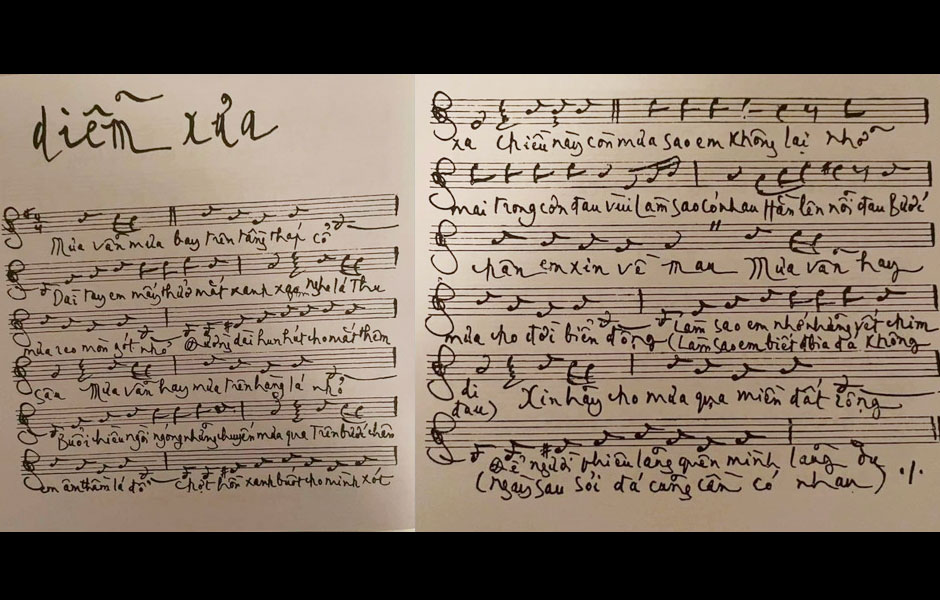 diễm xưa
Mưa vẫn mưa bay trên tầng tháp cổ
Dài tay em mấy thuở mắt xanh xao Nghe lá Thu
mưa reo mòn gót nhỏ Đường dài hun hút cho mắt thêm
sâu Mưa vẫn hay mưa trên hàng lá nhỏ
Buổi chiều ngồi ngóng những chuyến mưa qua Trên bước chân
em âm thầm lá đổ Chợt hồn xanh buốt cho mình xót
xa Chiều này còn mưa sao em không lại nhỡ
mai trong cơn đau vùi Làm sao có nhau Hằn lên nỗi đau Bước
chân em xin về mau Mưa vẫn hay
mưa cho đời biển động Làm sao em nhớ những vết chim
(Làm sao em biết bia đá không
di Xin hãy cho mưa qua miền đất rộng
đau)
Để người phiêu lãng quên mình lãng du
(ngày sau sỏi đá cũng cần có nhau)